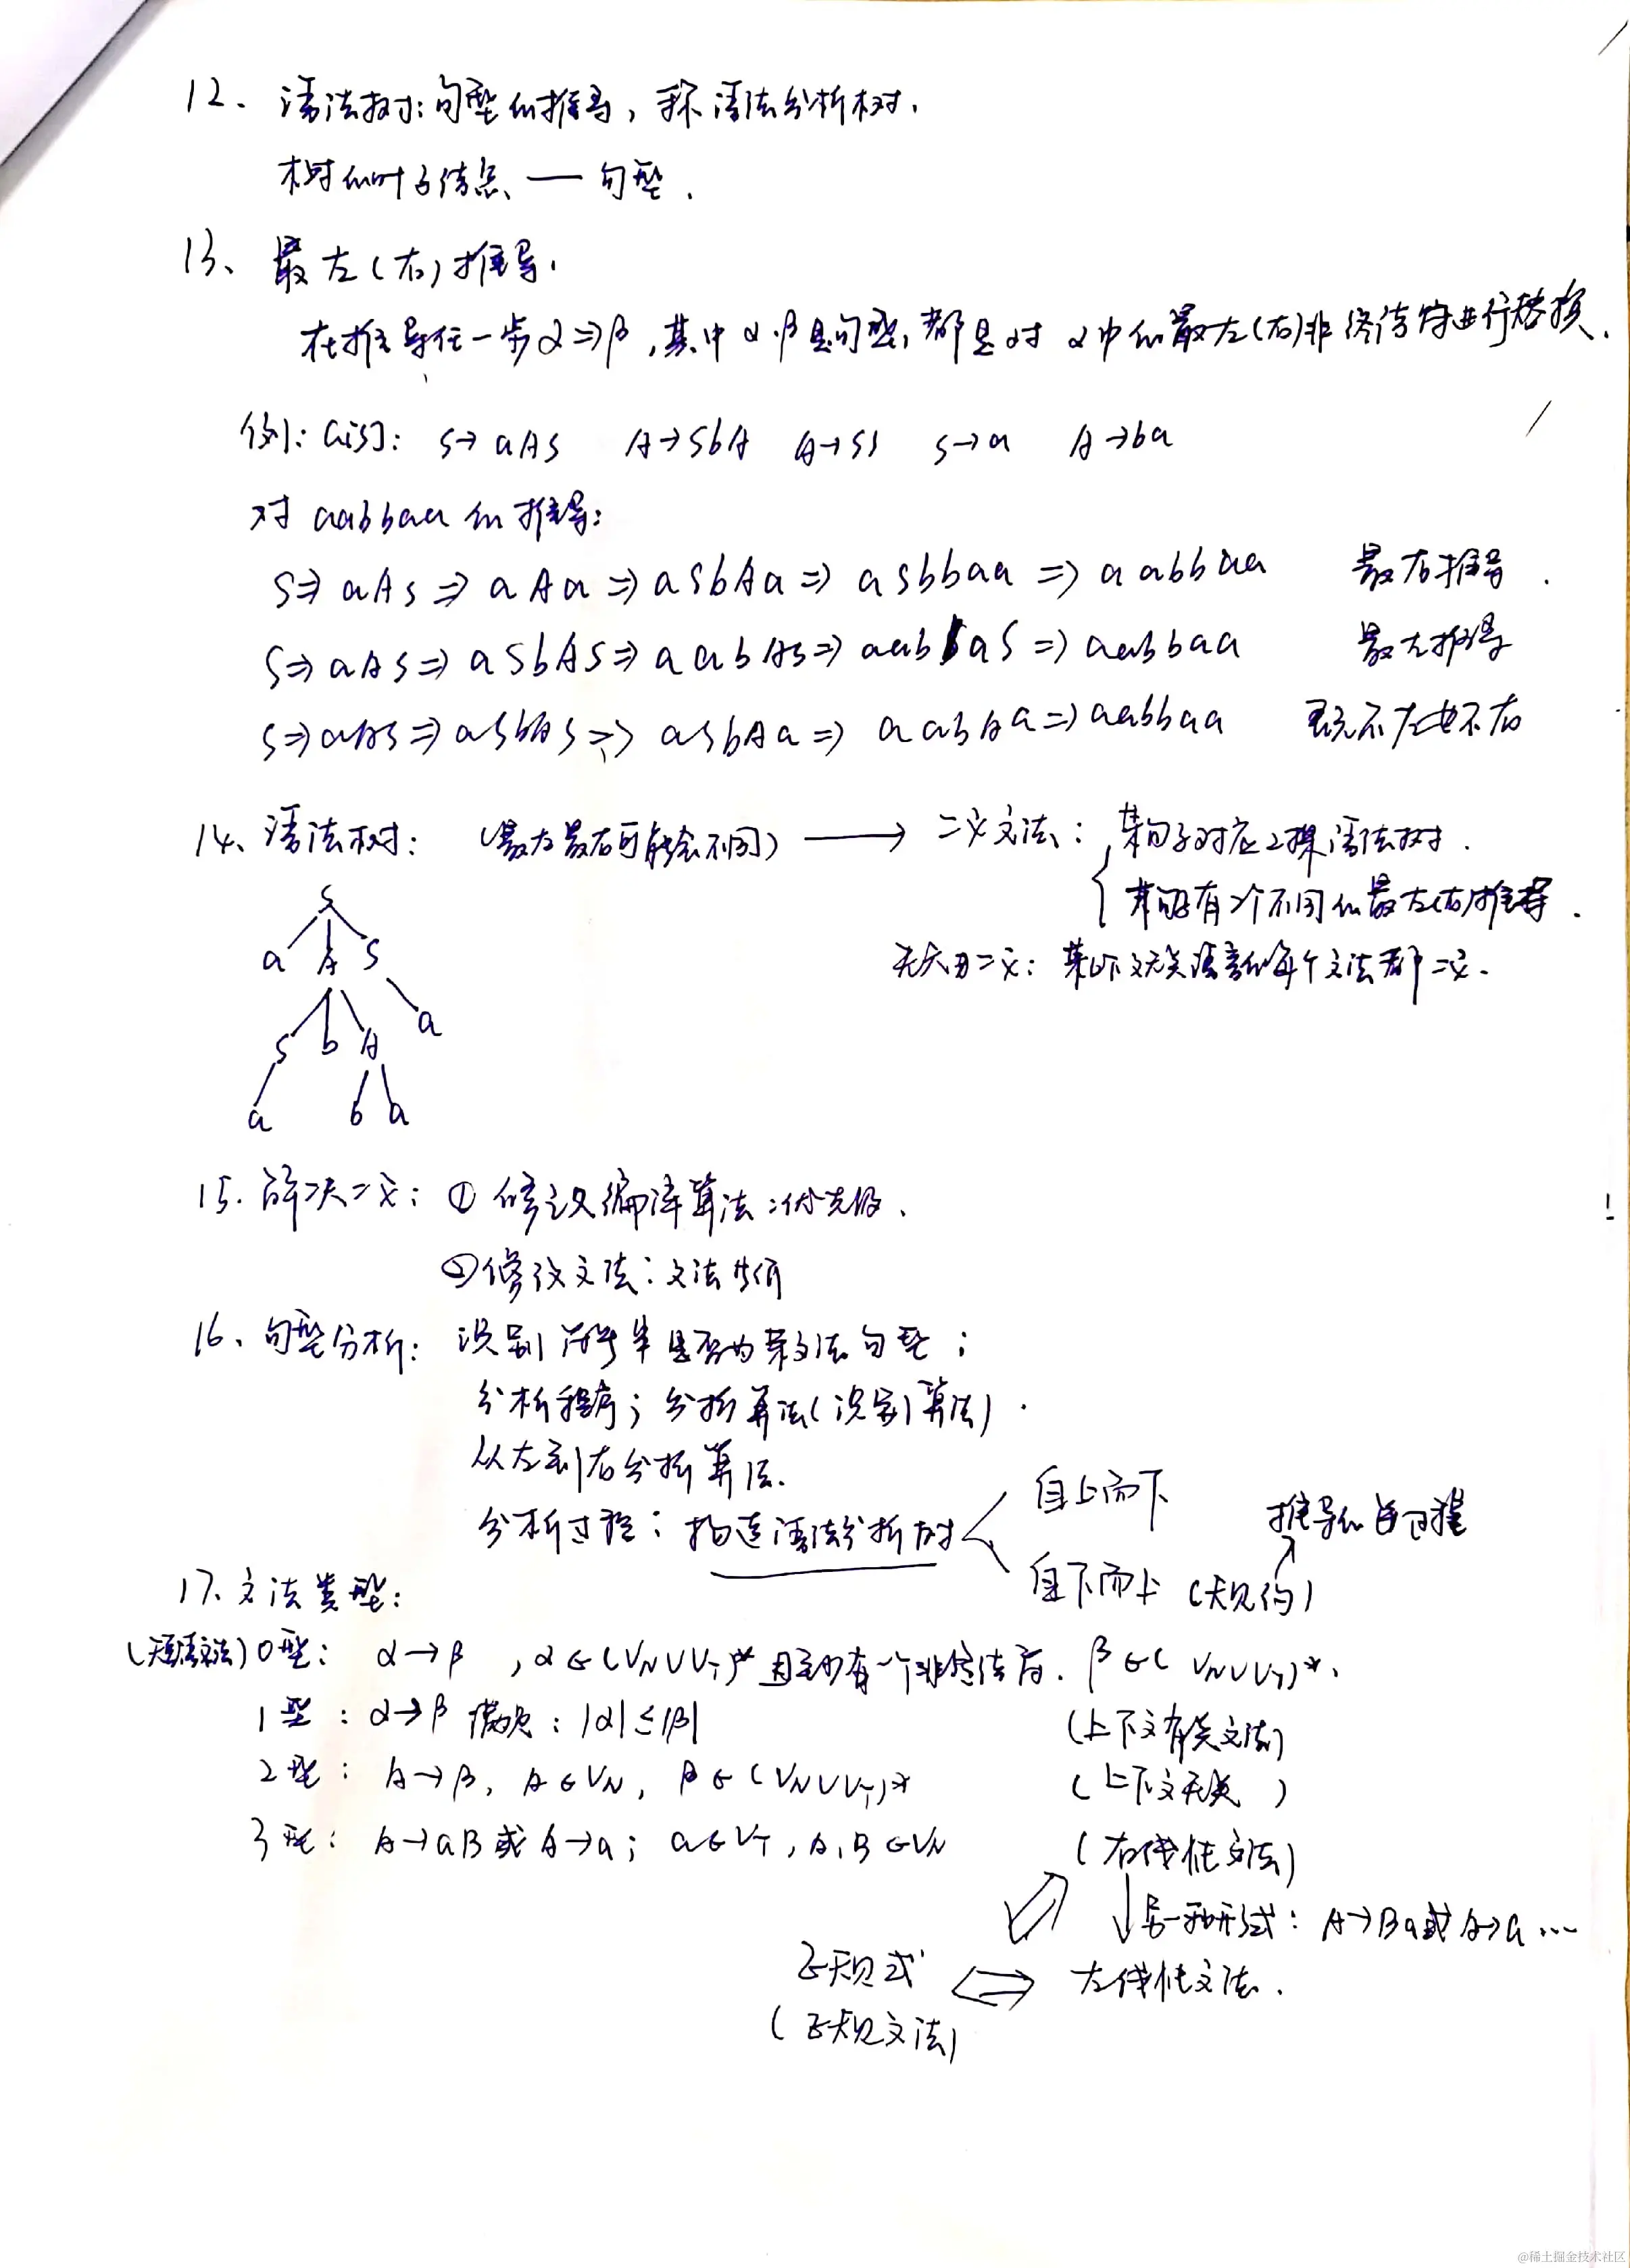 12、语法树：句型的推导，称语法分析树．
树的叶子结点 — 句型．
13、最左（右）推导．
在推导任一步α⇒β，其中α、β是句型，都是对α中的最左(右)非终结符进行替换．
例：G[S]： S→aAS A→SbA A→SS S→a A→ba
对aabbaa的推导：
S⇒aAS⇒aAa⇒aSbAa⇒aSbbaa⇒aabbaa 最右推导．
S⇒aAS⇒aSbAS⇒aabAS⇒aabbaS⇒aabbaa 最左推导
S⇒aAS⇒aSbAS⇒aSbAa⇒aabAa⇒aabbaa 既不左也不右
14、语法树：（最左最右可能会不同）⟶ 二义文法：某句子对应2棵语法树．
某句子有2个不同的最左(右)推导．
先天二义：某上下文无关语言的每个文法都二义．
S
a A S
S b A a
a b a
15．解决二义：① 修改编译算法：优先级．
②修改文法：文法等价
16、句型分析：识别符号串是否为某文法句型；
分析程序；分析算法（识别算法）．
从左到右分析算法．
分析过程：构造语法分析树
自上而下
自下而上（规约）
推导的逆过程
17、文法类型：
（短语文法）0型： α→β ，α∈(VN∪VT)* 且至少有一个非终结符．β∈(VN∪VT)*．
1型：α→β 满足：|α|≤|β| （上下文有关文法）
2型：A→β，A∈VN，β∈(VN∪VT)* （上下文无关）
3型：A→aB或A→a；a∈VT，A,B∈VN （右线性文法）
另一种形式：A→Ba或A→a …
正规式 ⟺ 左线性文法．
（正规文法）
@稀土掘金技术社区